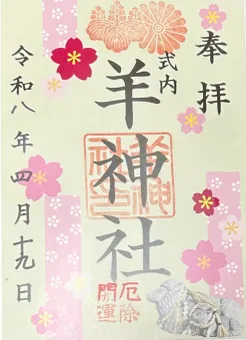 奉拝
式内
羊神社
厄除
開運
令和八年四月十九日